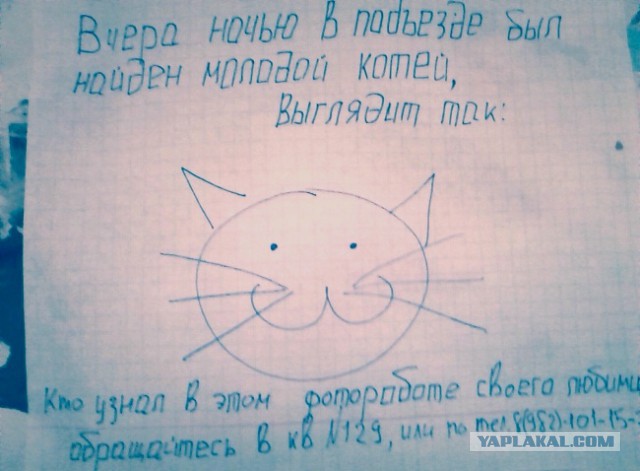 Вчера ночью в подъезде был
найден молодой котей,
Выглядит так:
Кто узнал в этом фотороботе своего
обращайтесь в кв №129, или по тел. 8(982)-101-15-
YAPLAKAL.COM